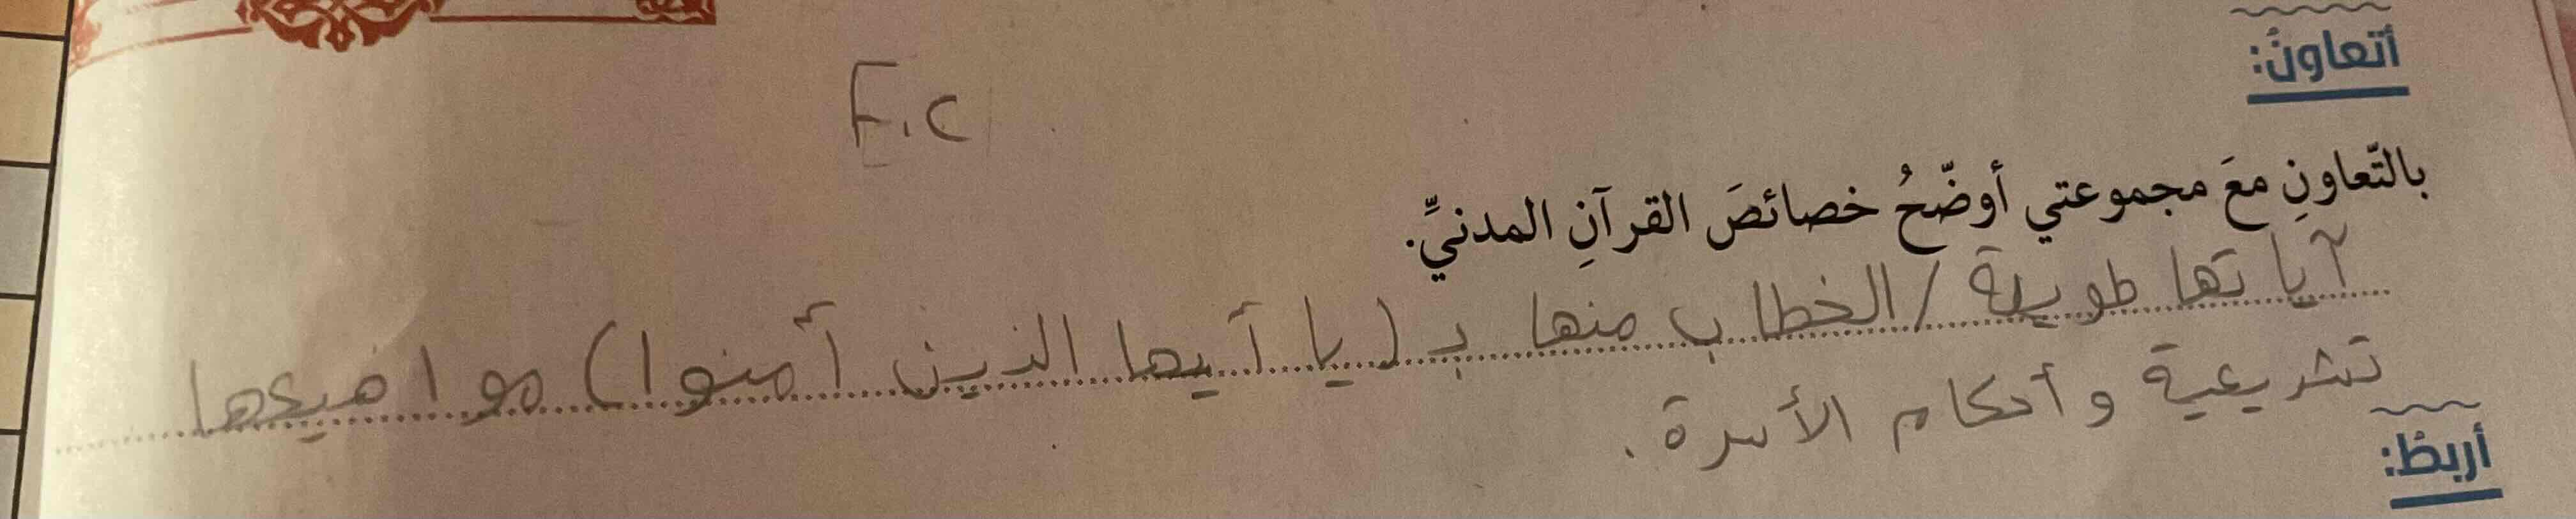 أتعاونُ:
F.C
بالتّعاونِ معَ مجموعتي أوضّحُ خصائصَ القرآنِ المدنيِّ.
آياتها طويلة / الخطاب منها بـ (يا أيها الذين أمنوا) مواضيعها
تشريعية وأحكام الأسرة.
أربطُ: